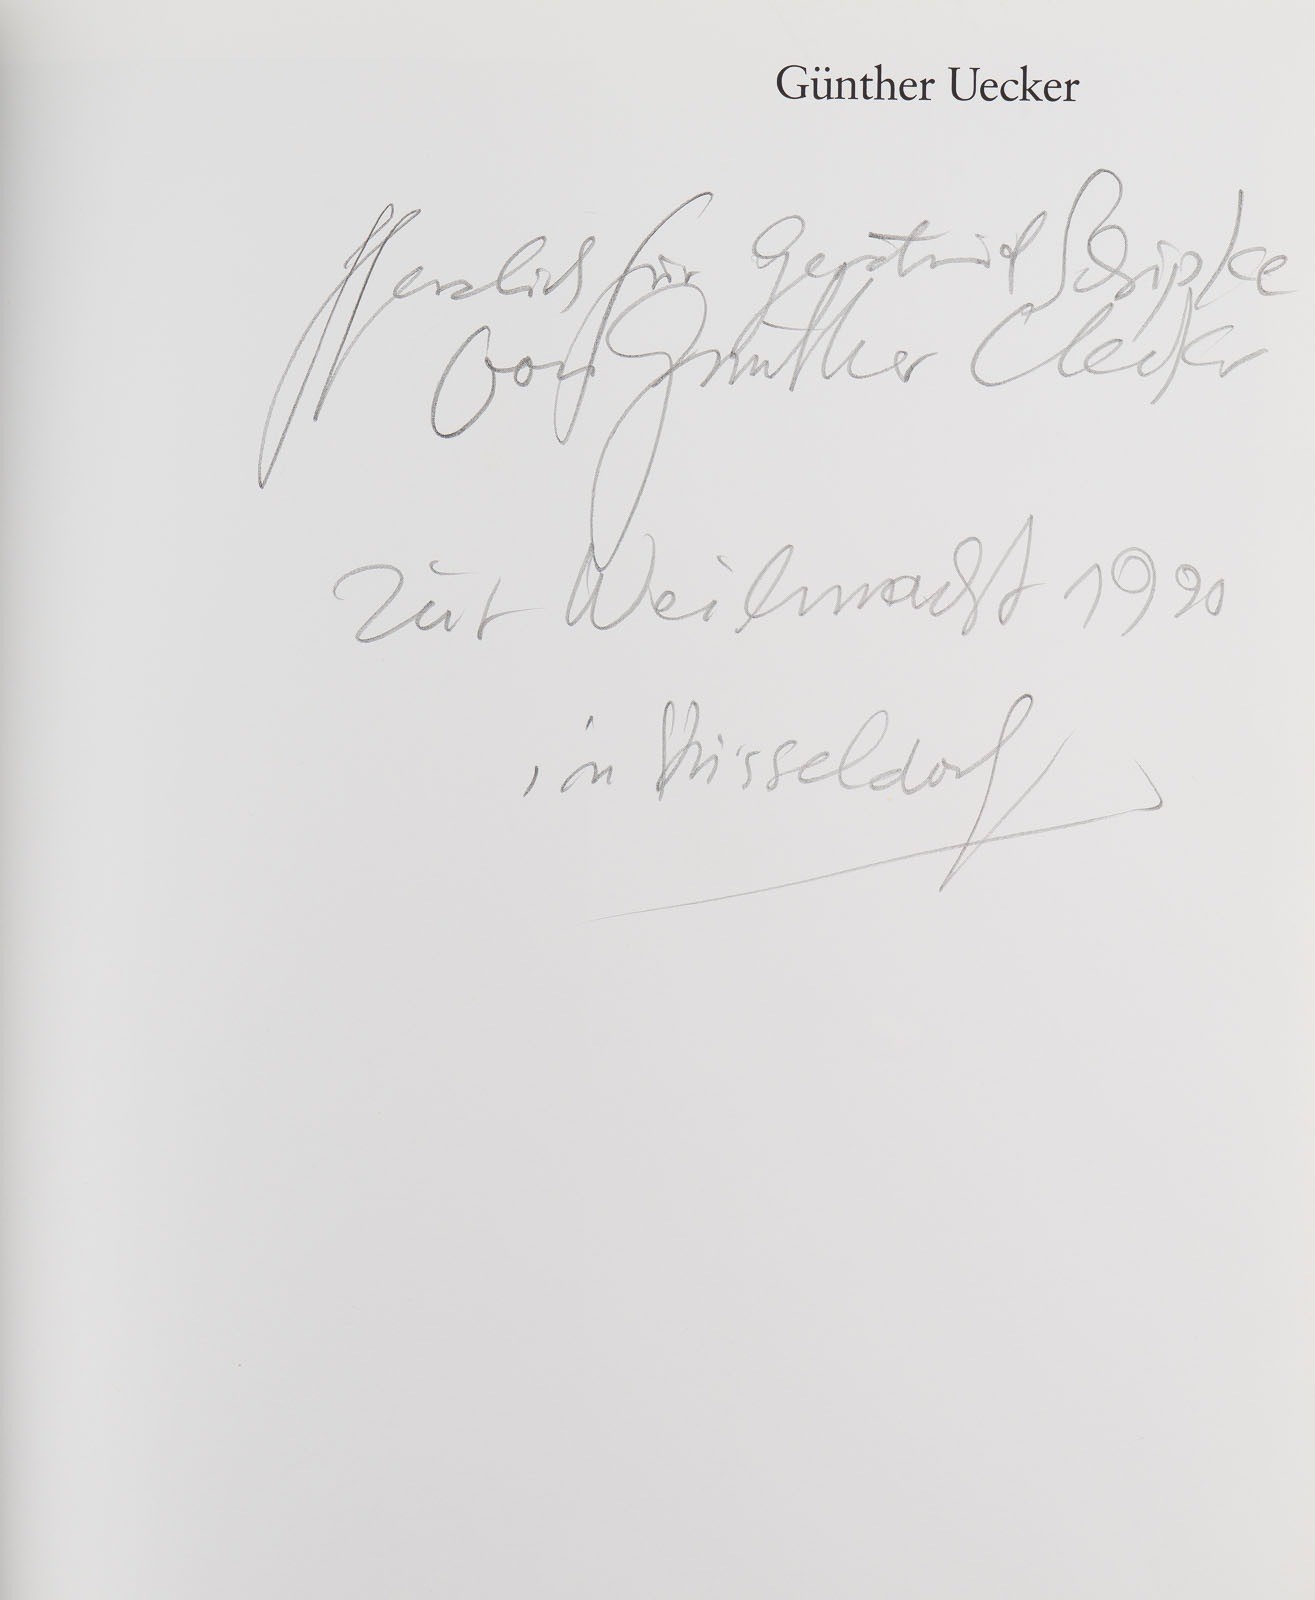 Günther Uecker
Herzlich für Gertrud Schipke
von Günther Uecker
zur Weihnacht 1990
in Düsseldorf